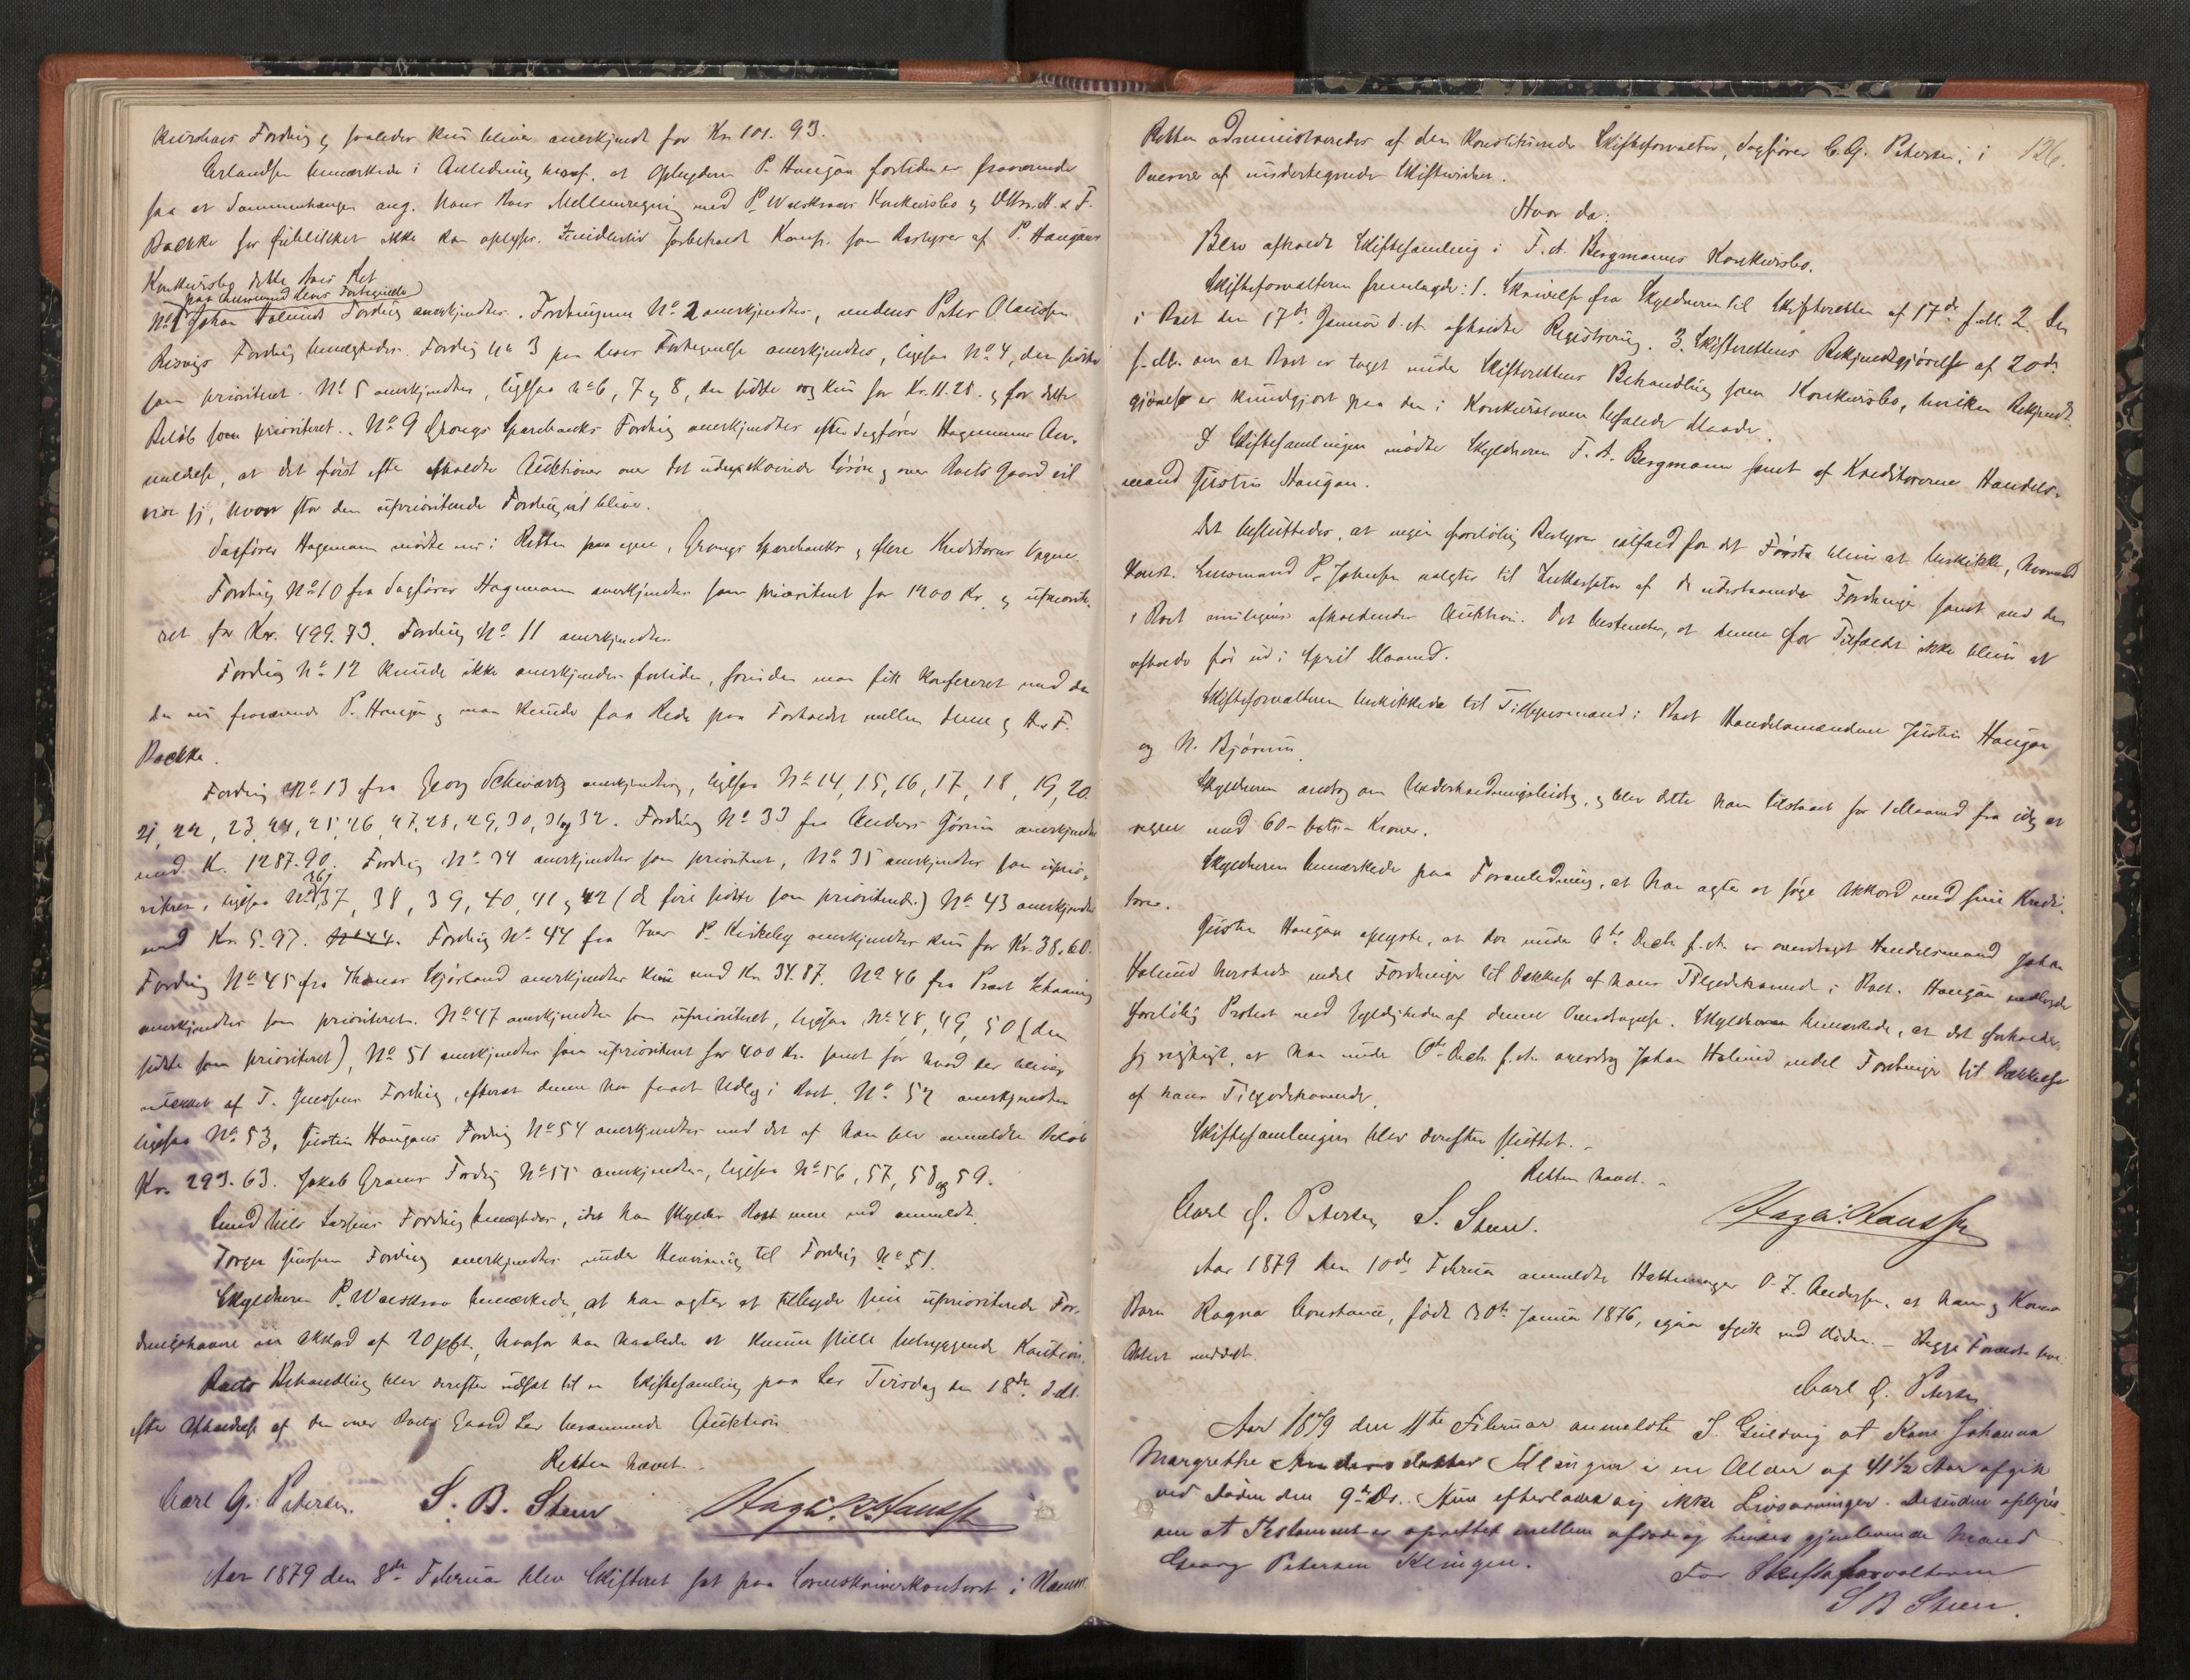 Fordring og saaledes kun bliver anerkjendt for Kr. 101. 93.
Erlandsen bemærkede i Anledning heraf, at Opbyderen P. Haugan fortiden er fraværende
saa at Sammenhængen ang. hans Boes Mellemregning med P. Wæskraas Konkursbo og H. & F.
Bachke for Øieblikket ikke kan oplyses. Imidlertid forbeholdt som Bestyrer af P. Haugans
Konkursbo dette Boes Ret
paa Lensmand Fortegnelse
No 1 Johan Fordring anerkjendtes. Fordringerne No 2 anerkjendtes, medens Peter Olaissen
Fordring benægtedes. Fordring No 3 paa Fortegnelse anerkjendtes, ligesaa No 4, den sidste
som prioriteret. No 5 anerkjendtes, ligesaa No 6, 7 og 8, den sidste dog kun for Kr. 11.28. og for dette
Beløb som prioriteret. No 9 Grongs Sparebanks Fordring anerkjendtes efter Sagfører Hagemanns An-
mældelse, at det først efter afholdte Auktioner over det Løsøre og over Boets Gaard vil
vise sig, hvor stor den uprioriterede Fordring vil blive.
Sagfører Hagemann mødte nu i Retten paa egne, Grongs Sparebanks og flere Kreditorers Vegne.
Fordring No 10 fra Sagfører Hagemann anerkjendtes som prioriteret for 1200 Kr. og upriorite-
ret for Kr. 499.73. Fordring No 11 anerkjendtes.
Fordring No 12 kunde ikke anerkjendes fortiden, forinden man fik konfereret med den
nu fraværende P. Haugan og man kunde faa Rede paa Forholdet mellem denne og H. & F.
Bachke.
Fordring No 13 fra Georg Schwartz anerkjendtes, ligesaa No 14, 15, 16, 17, 18, 19, 20.
21, 22, 23, 24, 25, 26, 27, 28, 29, 30, 31 og 32. Fordring No 33 fra Anders Gjørum anerkjendtes
med Kr. 1287.90. Fordring No 34 anerkjendtes som prioriteret, No 35 anerkjendtes som uprio-
riteret, ligesaa No 36, 37, 38, 39, 40, 41 og 42 (de fire sidste som prioriterede.) No 43 anerkjendtes
med Kr. 5.97. No 44. Fordring No 44 fra Iver P. Kirkeby anerkjendtes kun for Kr. 38.60.
Fordring No 45 fra Thomas anerkjendtes kun med Kr. 34.87. No 46 fra Provst Schaaning
anerkjendtes som prioriteret. No 47 anerkjendtes som uprioriteret, ligesaa No 48, 49, 50 (den
sidste som prioriteret), No 51 anerkjendtes som uprioriteret for 400 Kr. samt for hvad der bliver
af T. Jenssens Fordring, efterat denne har faaet Udlæg i Boet. No 52 anerkjendtes
ligesaa No 53, Justin Haugans Fordring No 54 anerkjendtes med det af ham selv anmeldte Beløb
Kr. 293.63. Jakob Fordring No 55 anerkjendtes, ligesaa No 56, 57, 58 og 59.
Nils Larsens Fordring benægtedes, idet han skylder Boet mere end anmeldt.
Torger Jenssens Fordring anerkjendtes under Henvisning til Fordring No 51.
Skyldneren P. Wæskraa bemærkede, at han agter at tilbyde sine uprioriterede For-
dringshavere en Akkord af 20 pCt., hvorfor han haabede at kunne stille betryggende Kaution.
Boets Behandling blev derefter udsat til en Skiftesamling paa Tirsdag den 18de ds.
efter Afholdelse af den over Boets Gaard berammede Auktion.
Retten hævet.
Carl G. Petersen. S. B. Steen
Aar 1879 den 8de Februar blev Skifteret sat paa Sorenskriverkontoret i Namsos.
126.
Retten administreredes af den konstituerede Skifteforvalter, Sagfører C. G. Petersen, i
Overvær af undertegnede Skiftevidner.
Hvor da:
Blev afholdt Skiftesamling i F. A. Bergmanns Konkursbo.
Skifteforvalteren fremlagde: 1. Skrivelse fra Skyldneren til Skifteretten af 17de f. M. 2. Den
i Boet den 17de Januar d. A. afholdte Registrering. 3. Skifterettens Bekjendtgjørelse af 20de
f. M. om at Boet er taget under Skifterettens Behandling som Konkursbo, hvilken Bekjendt-
gjørelse er kundgjort paa den i Konkursloven befalede Maade.
I Skiftesamlingen mødte Skyldneren F. A. Bergmann samt af Kreditorerne Handels-
mand Justin Haugan.
Det besluttedes, at ingen foreløbig Bestyrer ialfald for det Første bliver at beskikke, hvorimod
Konst. Lensmand P. Johnsen valgtes til Inkassator af de udestaaende Fordringer samt ved den
i Boet muligens afholdendes Auktion. Det bestemtes, at denne for Tilfældet ikke bliver at
afholde før ud i April Maaned.
Skifteforvalteren beskikkede til Tillidsmænd i Boet Handelsmændene Justin Haugan
og N. Bjørum.
Skyldneren androg om Underholdningsbidrag, og blev dette ham tilstaaet for 1 Maaned fra idag at
regne med 60 - seksti - Kroner.
Skyldneren bemærkede paa Foranledning, at han agter at søge Akkord med sine Kredi-
torer.
Justin Haugan oplyste, at der under 6te Decbr. f. A. er overdraget Handelsmand Johan
endel Fordringer til Dækkelse af hans Tilgodehavende i Boet. Haugan nedlagde
foreløbig Protest mod Gyldigheden af denne Overdragelse. Skyldneren bemærkede, at det forholder
sig rigtigt, at han under 6te Decbr. f. A. overdrog Johan endel Fordringer til Dækkelse
af hans Tilgodehavende.
Skiftesamlingen blev derefter sluttet.
Retten hævet.
Carl G. Petersen S. Steen.
Aar 1879 den 10de Februar anmeldte Hattemager O. Z. Andersen, at ham og Kones
Barn Ragna Constance, født 20de Januar 1876, igaar afgik ved Døden. - Begge Forældre lever.
Attest meddelt.
Carl G. Petersen
Aar 1879 den 11te Februar anmeldte S. Guldvig at Kone Johanna
Margrethe Klingen i en Alder af 41½ Aar afgik
ved Døden den 9de Ds. Hun efterlader sig ikke Livsarvinger. Desuden oplystes
om at Testament er oprettet mellem afdøde og hendes gjenlevende Mand
Georg Petersen Klingen.
For Skifteforvalteren
S B Steen.